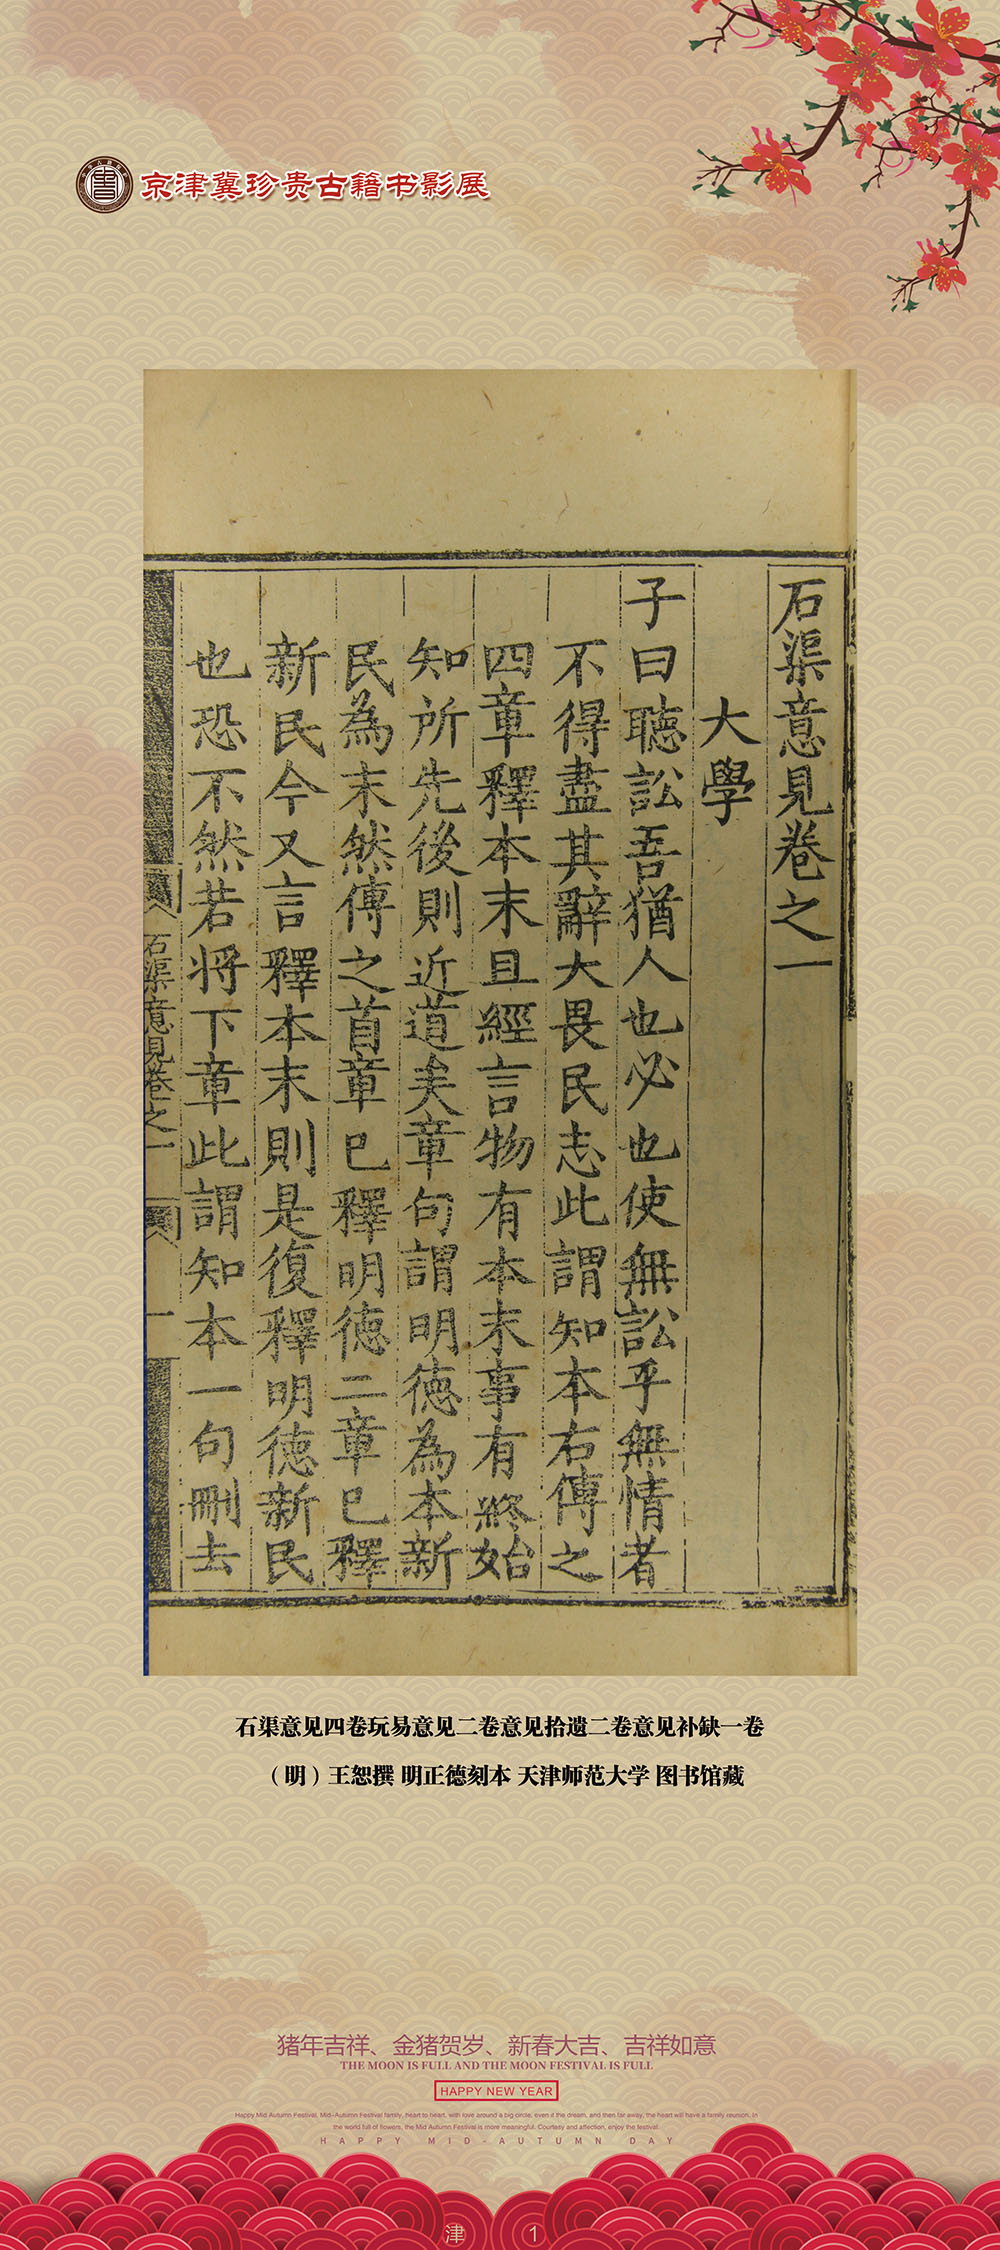 京津冀珍贵古籍书影展
石渠意見卷之一
大學
子曰聽訟吾猶人也必也使無訟乎無情者
不得盡其辭大畏民志此謂知本右傳之
四章釋本末且經言物有本末事有終始
知所先後則近道矣章句謂明德為本新
民為末然傳之首章已釋明德二章已釋
新民今又言釋本末則是復釋明德新民
也恐不然若将下章此謂知本一句刪去
石渠意見卷之一
一
石渠意见四卷玩易意见二卷意见拾遗二卷意见补缺一卷
（明）王恕撰 明正德刻本 天津师范大学 图书馆藏
猪年吉祥、金猪贺岁、新春大吉、吉祥如意
THE MOON IS FULL AND THE MOON FESTIVAL IS FULL
HAPPY NEW YEAR
Happy Mid Autumn Festival, Mid-Autumn Festival family, heart to heart, with love around a big circle, even if the dream, and then far away, the heart will have a family reunion. In
the world full of flowers, the Mid Autumn Festival is more meaningful. Courtesy and affection, enjoy the festival.
HAPPY MID-AUTUMN DAY
津 1